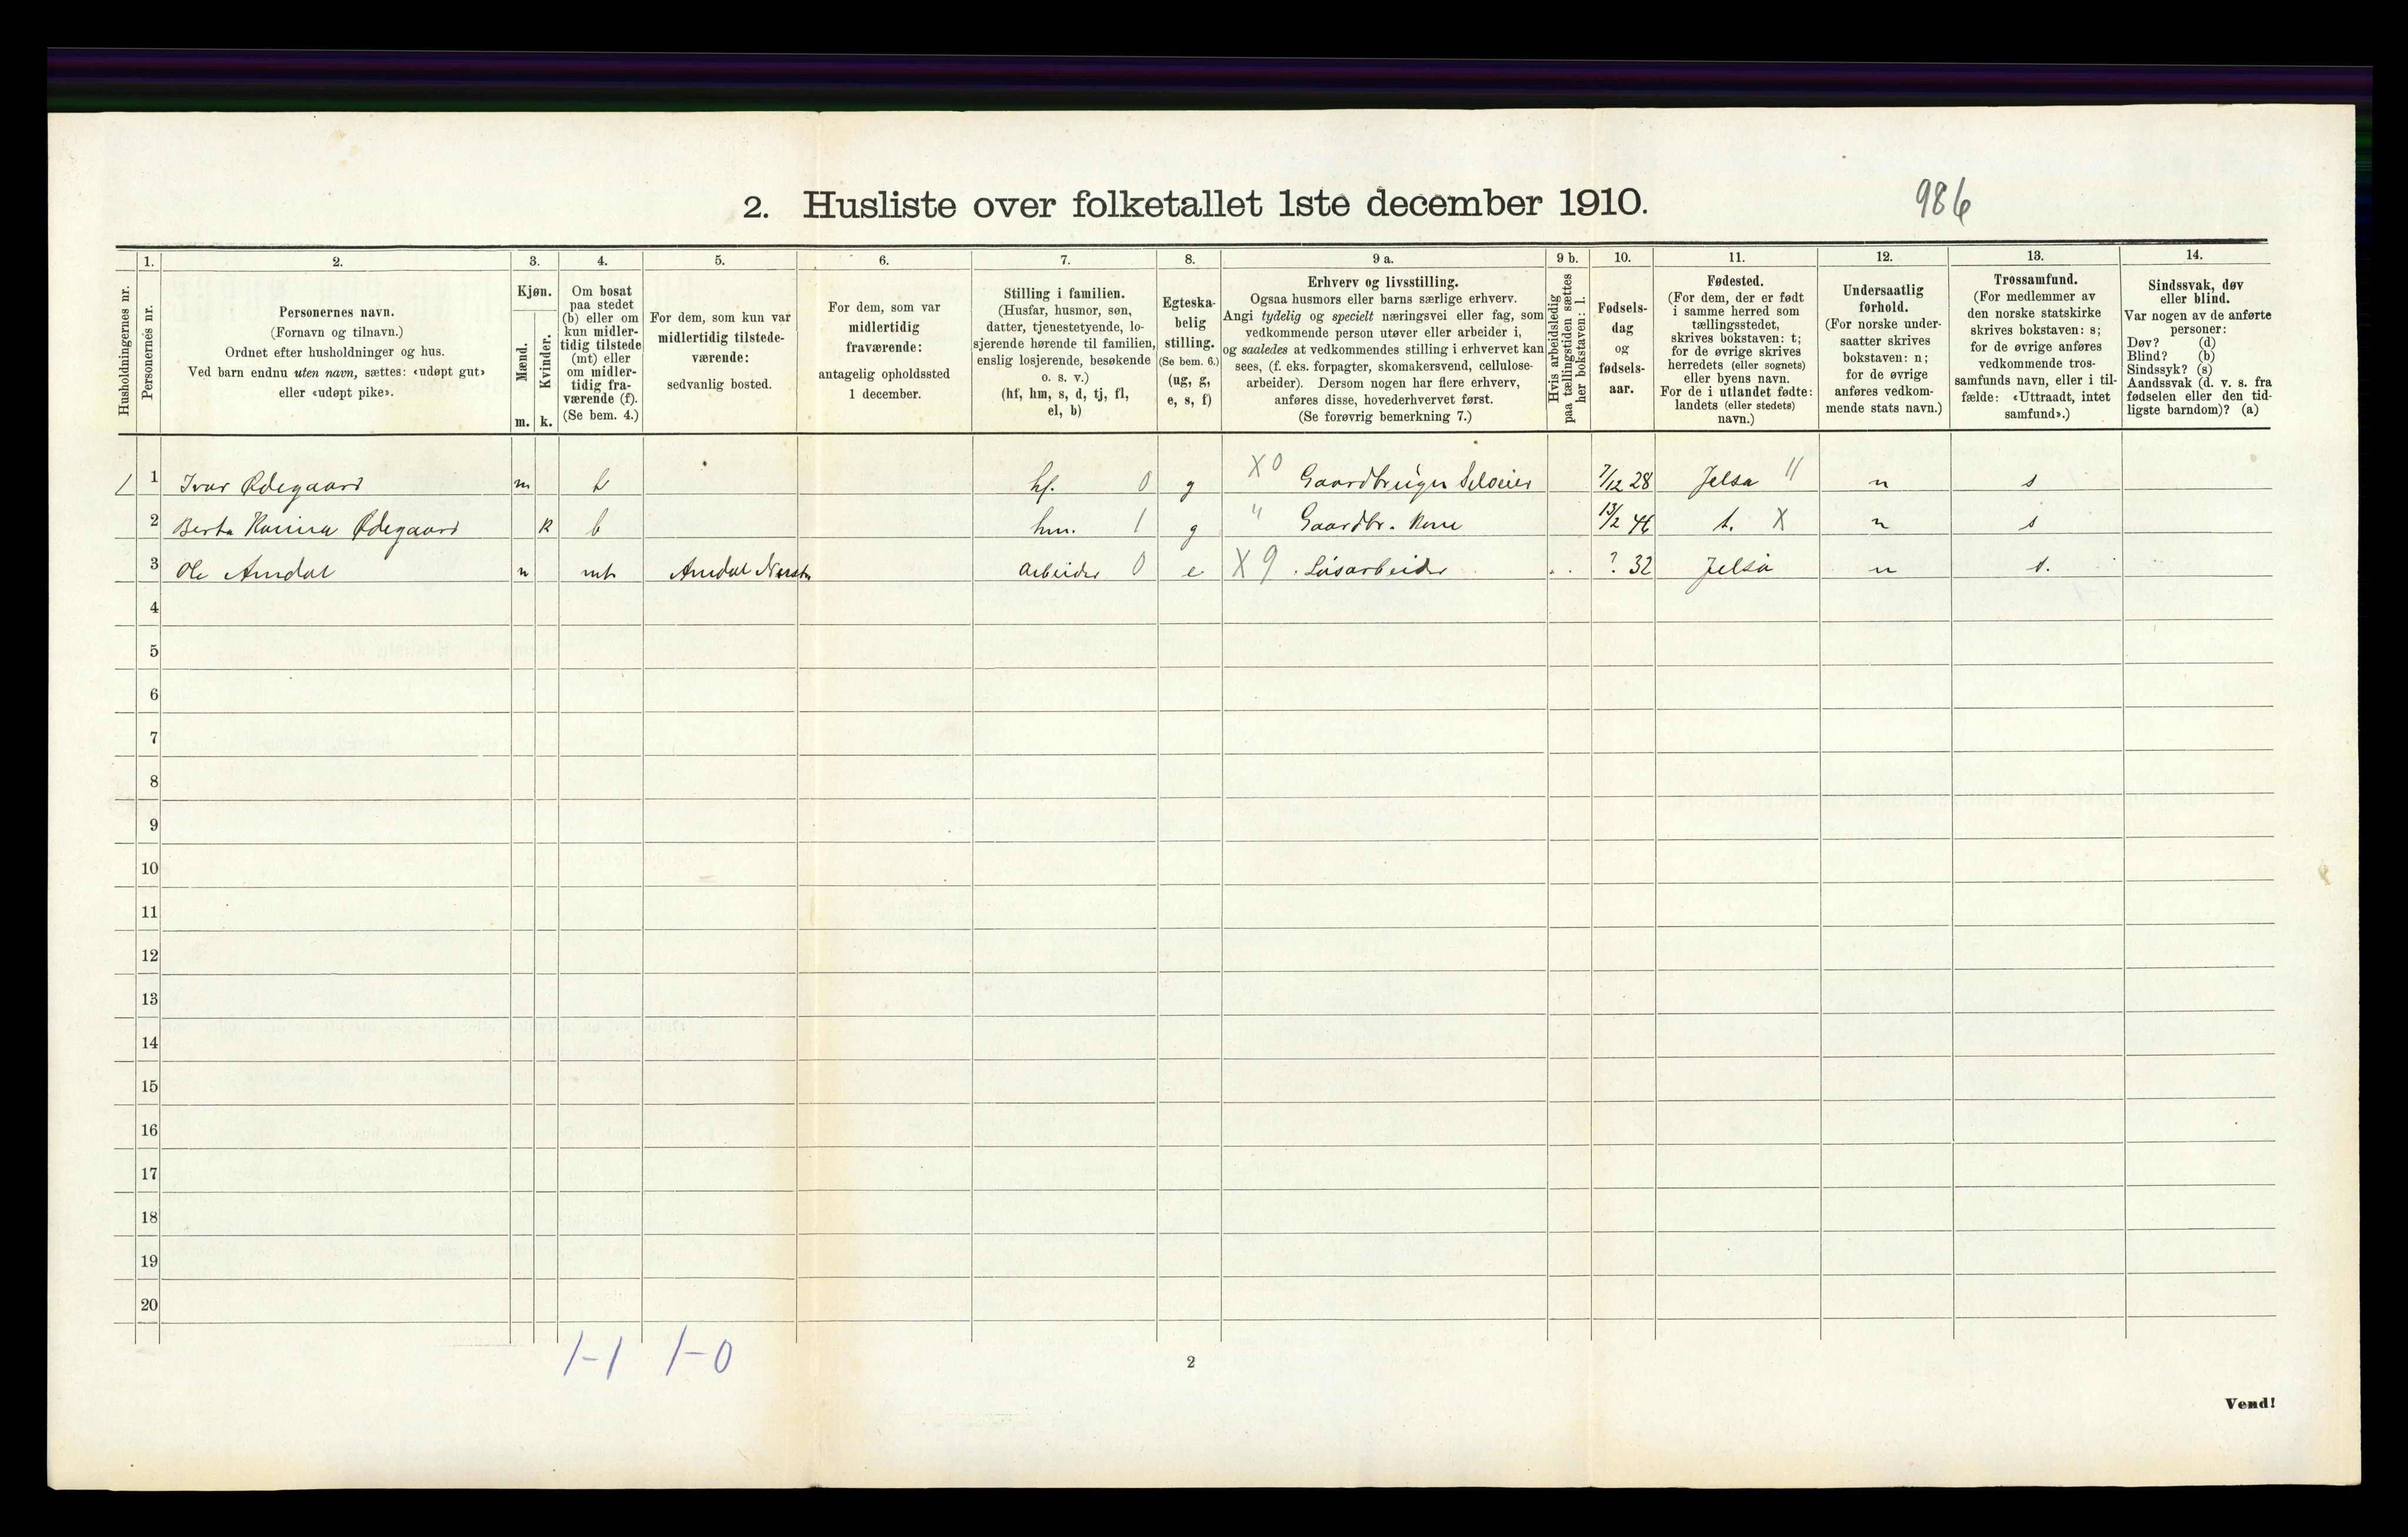 2. Husliste over folketallet 1ste december 1910.
986
1. 2. 3. 4. 5. 6. 7. 8. 9 a. 9 b. 10. 11. 12. 13. 14.
Husholdningernes nr.
Personernes nr.
Personernes navn.
(Fornavn og tilnavn.)
Ordnet efter husholdninger og hus.
Ved barn endnu uten navn, sættes: «udøpt gut»
eller «udøpt pike».
Kjøn.
Mænd.
Kvinder.
m. k.
Om bosat
paa stedet
(b) eller om
kun midler-
tidig tilstede
(mt) eller
om midler-
tidig fra-
værende (f).
(Se bem. 4.)
For dem, som kun var
midlertidig tilstede-
værende:
sedvanlig bosted.
For dem, som var
midlertidig
fraværende:
antagelig opholdssted
1 december.
Stilling i familien.
(Husfar, husmor, søn,
datter, tjenestetyende, lo-
sjerende hørende til familien,
enslig losjerende, besøkende
o. s. v.)
(hf, hm, s, d, tj, fl,
el, b)
Egteska-
belig
stilling.
(Se bem. 6.)
(ug, g,
e, s, f)
Erhverv og livsstilling.
Ogsaa husmors eller barns særlige erhverv.
Angi tydelig og specielt næringsvei eller fag, som
vedkommende person utøver eller arbeider i,
og saaledes at vedkommendes stilling i erhvervet kan
sees, (f. eks. forpagter, skomakersvend, cellulose-
arbeider). Dersom nogen har flere erhverv,
anføres disse, hovederhvervet først.
(Se forøvrig bemerkning 7.)
Hvis arbeidsledig
paa tællingstiden sættes
her bokstaven: l.
Fødsels-
dag
og
fødsels-
aar.
Fødested.
(For dem, der er født
i samme herred som
tællingsstedet,
skrives bokstaven: t;
for de øvrige skrives
herredets (eller sognets)
eller byens navn.
For de i utlandet fødte:
landets (eller stedets)
navn.)
Undersaatlig
forhold.
(For norske under-
saatter skrives
bokstaven: n;
for de øvrige
anføres vedkom-
mende stats navn.)
Trossamfund.
(For medlemmer av
den norske statskirke
skrives bokstaven: s;
for de øvrige anføres
vedkommende tros-
samfunds navn, eller i til-
fælde: «Uttraadt, intet
samfund».)
Sindssvak, døv
eller blind.
Var nogen av de anførte
personer:
Døv? (d)
Blind? (b)
Sindssyk? (s)
Aandssvak (d. v. s. fra
fødselen eller den tid-
ligste barndom)? (a)
1 1 Ivar Ødegaard m b hf. 0 g X 0 Gaardbruger Selveier 7/12 28 Jelsa " n s
2 Berta Ødegaard k b hm. 1 g " Gaardbr. Kone 13/2 46 t. X n s
3 Ole Amdal m mt Amdal arbeider 0 e X 9 Løsarbeider ? 32 Jelsa n s.
4
5
6
7
8
9
10
11
12
13
14
15
16
17
18
19
20
1-1 1-0
2
Vend!